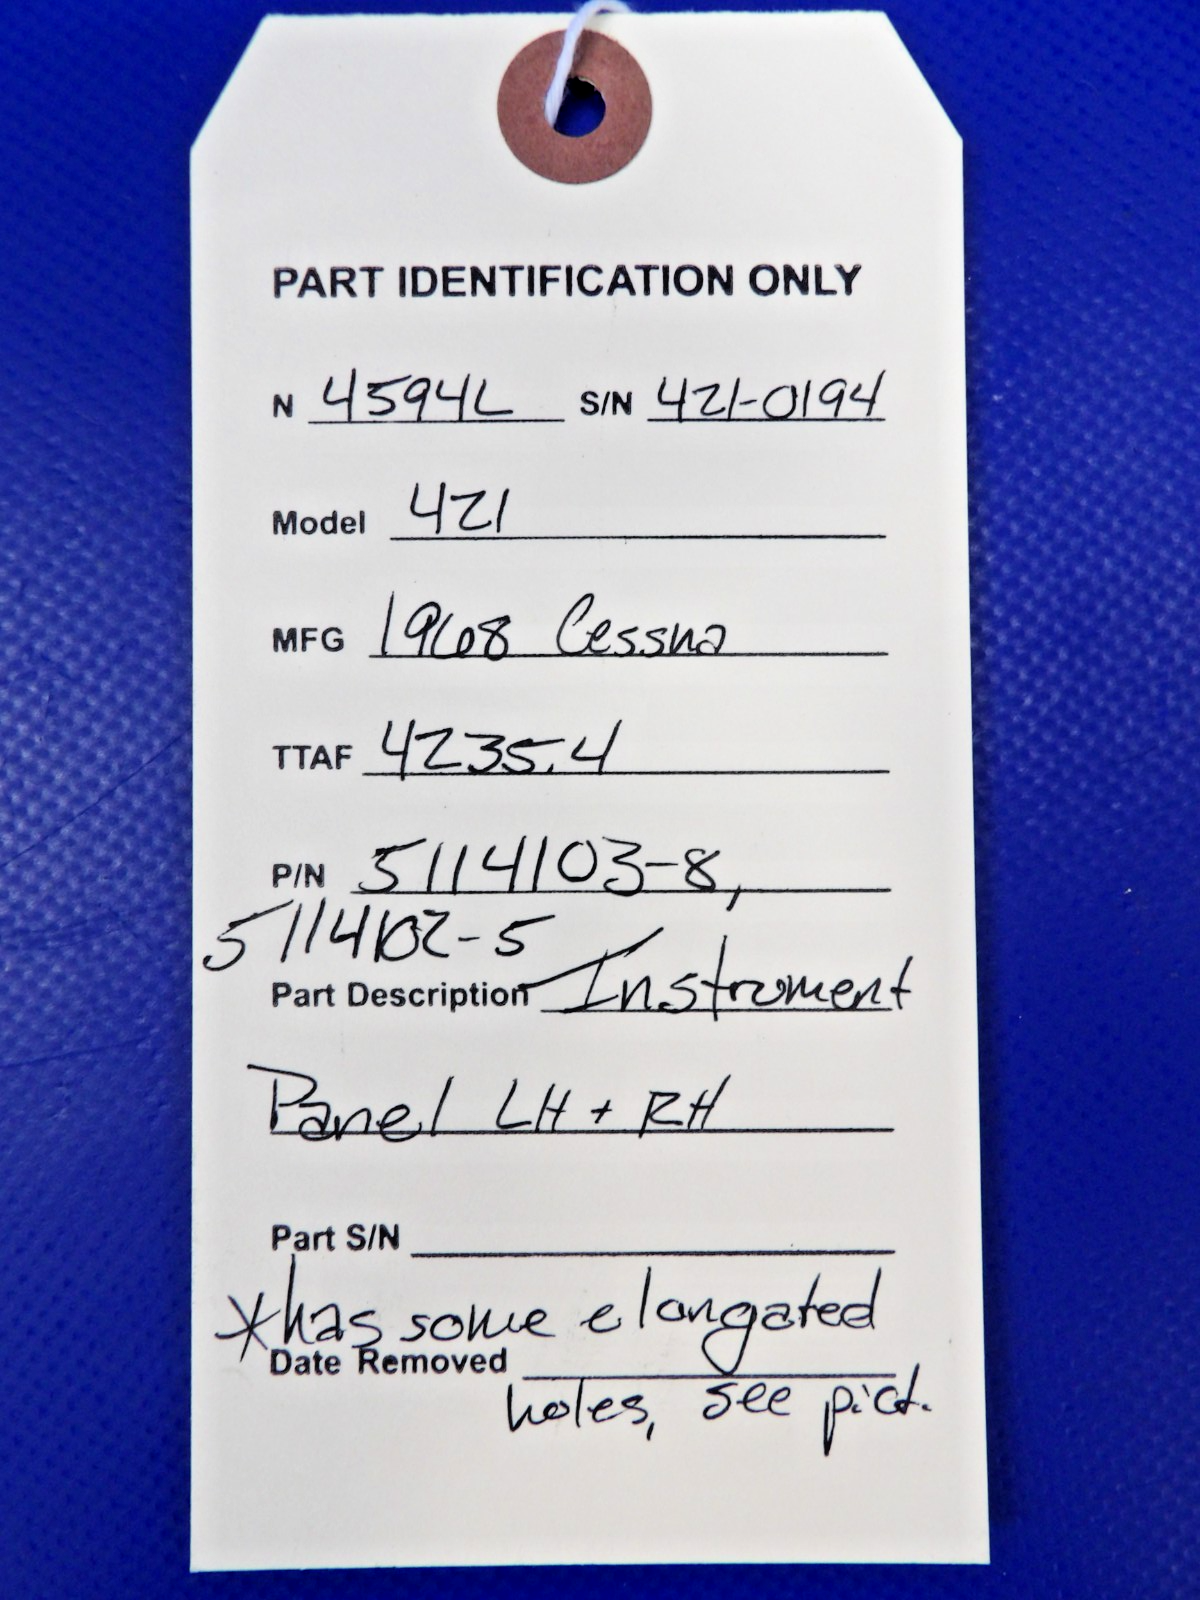 PART IDENTIFICATION ONLY
N 4594L S/N 421-0194
Model 421
MFG 1968 Cessna
TTAF 4235.4
P/N 5114103-8,
5114102-5
Part Description Instrument
Panel LH + RH
Part S/N
*has some elongated
Date Removed
holes, see pict.